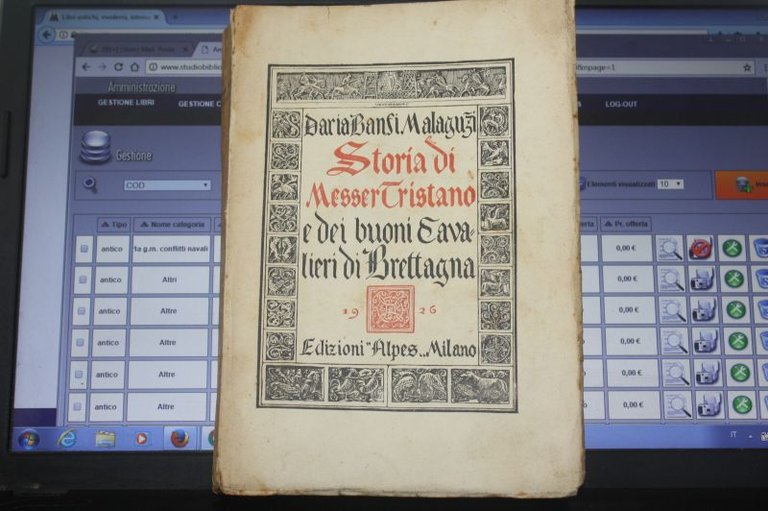 Libri antichi, moderni, introva
www.studiobiblio
&mpage=1
Amministrazione
GESTIONE LIBRI
GESTIONE C
LOG-OUT
Gestione
COD
Elementi visualizzati 10
Tipo
Nome categoria
Pr. offerta
antico
1a g.m. conflitti navali
0,00 €
antico
Altri
0,00 €
antico
Altre
0,00 €
antico
Altre
0,00 €
antico
Altre
0,00 €
antico
Altre
0,00 €
IT
Daria Banfi Malaguzzi
Storia di
Messer Tristano
e dei buoni Cava-
lieri di Brettagna
1926
Edizioni "Alpes" Milano